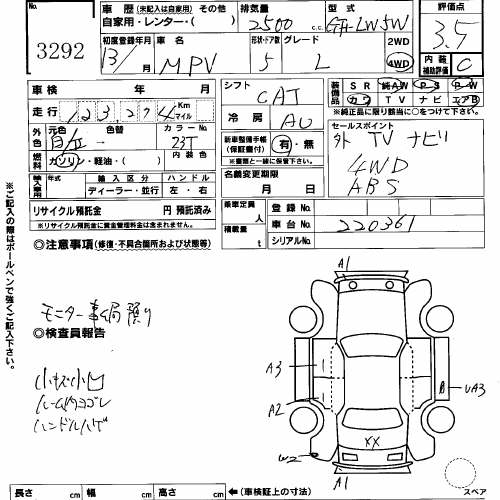 3292
車 歴 (未記入は自家用) その他
自家用・レンター・( )
排気量
2500 c.c.
型式
GH-LW5W
評価点
3.5
初度登録年月
13/ 月
車 名
MPV
形状・ドア数
5
グレード
L
2WD
4WD
内 装
補助評価
C
車 検 年 月
シフト
CAT
装備品
SR 純AW PS PW
カワ TV ナビ エアB
※純正品に限り該当に○をつけて下さい。
走 行
1 2 3,274 Km マイル
冷 房
AU
セールスポイント
外 TV ナビ
4WD
ABS
外色
元色 色替
カラー No
23T
新車整備手帳
(保証書付)
有・無
※車歴と一緒に保管下さい。
燃料
ガソリン・軽油・( )
内 装 色
名義変更期限
月 日
輸入車用
年式 輸 入 区 分 ハ ン ド ル
ディーラー・並行 左 ・ 右
リサイクル預託金 円 預託済み
※リサイクル預託金に資金管理料金は含まれません。
乗車定員
人
積載量
t
登 録 No.
車 台 No.
220361
シリアルNo.
◎注意事項(修復・不具合箇所および状態等)
モニター事ム局預り
◎検査員報告
小キズ小凹
ルーム内ヨゴレ
ハンドルハゲ
※ご記入の際はボールペンで強くご記入下さい。
A1
A3
A2
B
UA3
W2
XX
A1
スペア
長さ cm 幅 cm 高さ cm ◀(車検証上の寸法)